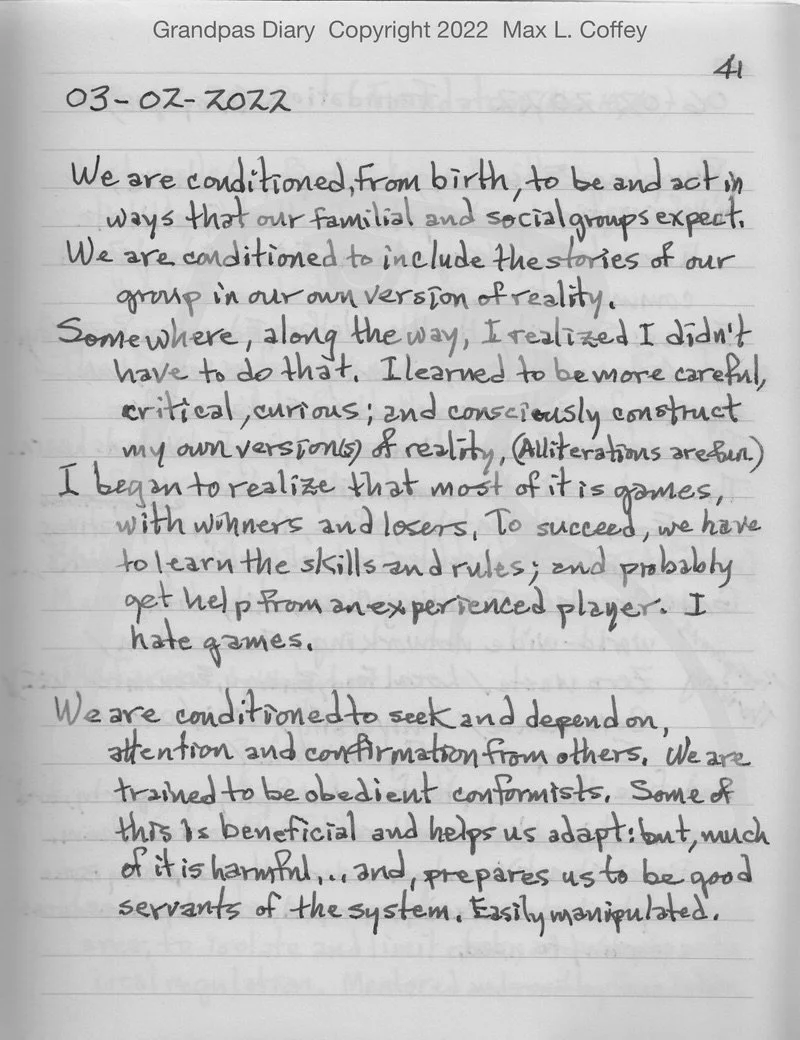 Grandpas Diary Copyright 2022 Max L. Coffey
41
03-02-2022
We are conditioned, from birth, to be and act in
ways that our familial and social groups expect.
We are conditioned to include the stories of our
group in our own version of reality.
Somewhere, along the way, I realized I didn't
have to do that. I learned to be more careful,
critical, curious; and consciously construct
my own version(s) of reality, (Alliterations are fun.)
I began to realize that most of it is games,
with winners and losers. To succeed, we have
to learn the skills and rules; and probably
get help from an experienced player. I
hate games.
We are conditioned to seek and depend on,
attention and confirmation from others. We are
trained to be obedient conformists. Some of
this is beneficial and helps us adapt: but, much
of it is harmful... and, prepares us to be good
servants of the system. Easily manipulated.